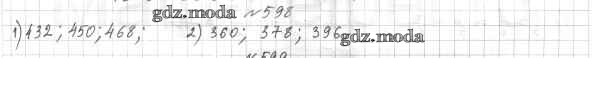 gdz.moda №598
1) 432; 450; 468; 2) 360; 378; 396 gdz.moda
№599